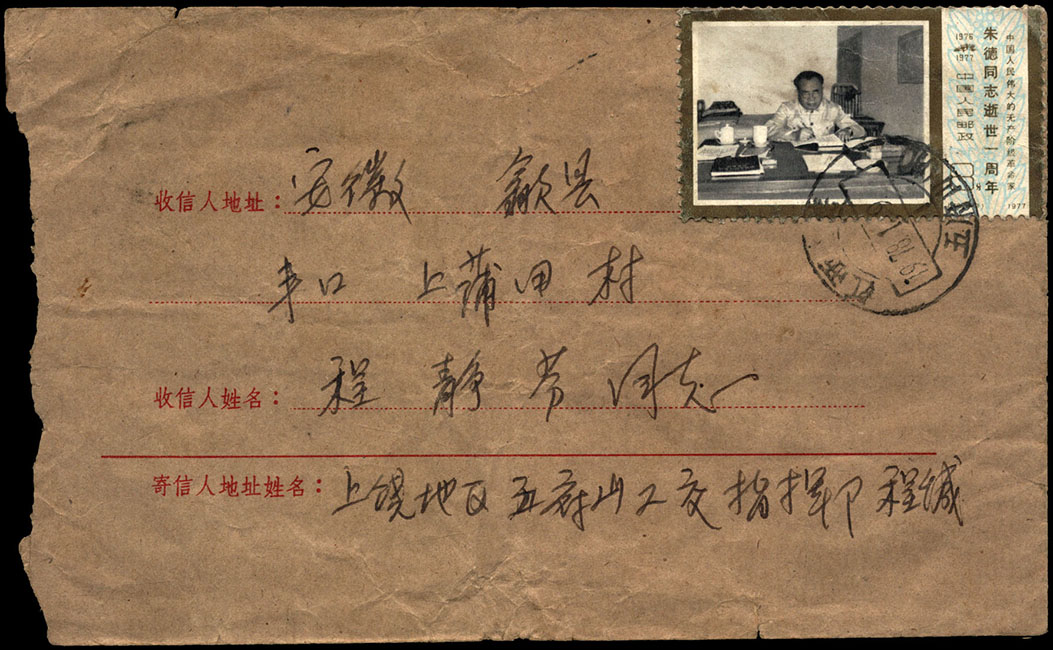 中国人民伟大的无产阶级革命家
朱德同志逝世一周年
1976
1977
中国人民邮政
8
1977
收信人地址：安徽 歙县
丰口 上蒲田 村
收信人姓名：程 静芳 同志
寄信人地址姓名：上饶地区五府山工交指挥部 程缄
江西
五府山